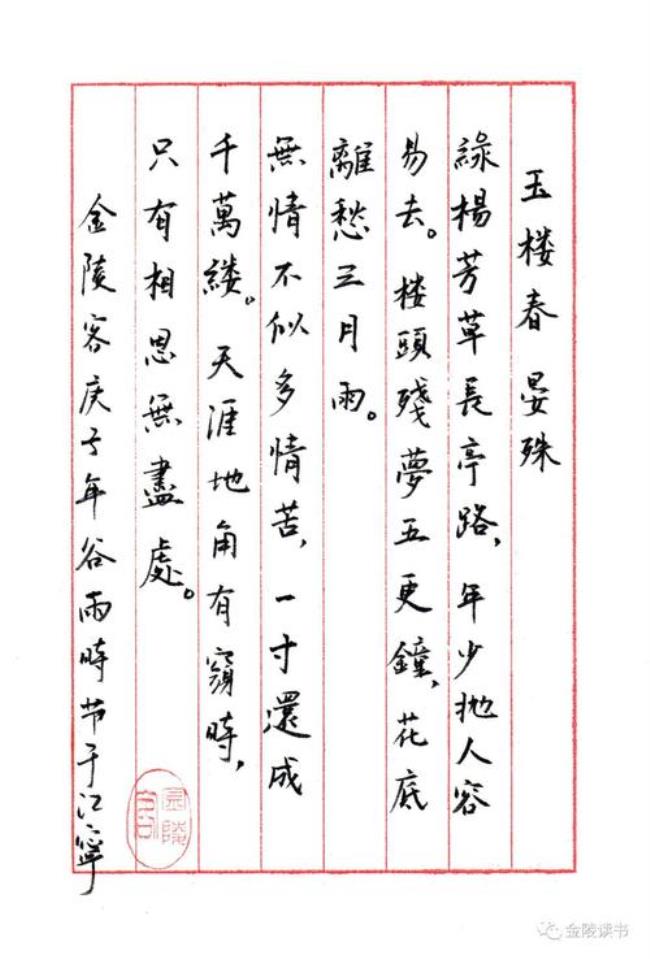 玉楼春 晏殊
綠楊芳草長亭路，年少抛人容
易去。楼頭殘夢五更鐘，花底
離愁三月雨。
無情不似多情苦，一寸還成
千萬縷。天涯地角有窮時，
只有相思無盡處。
金陵客庚子年谷雨時节于江寧
金陵读书